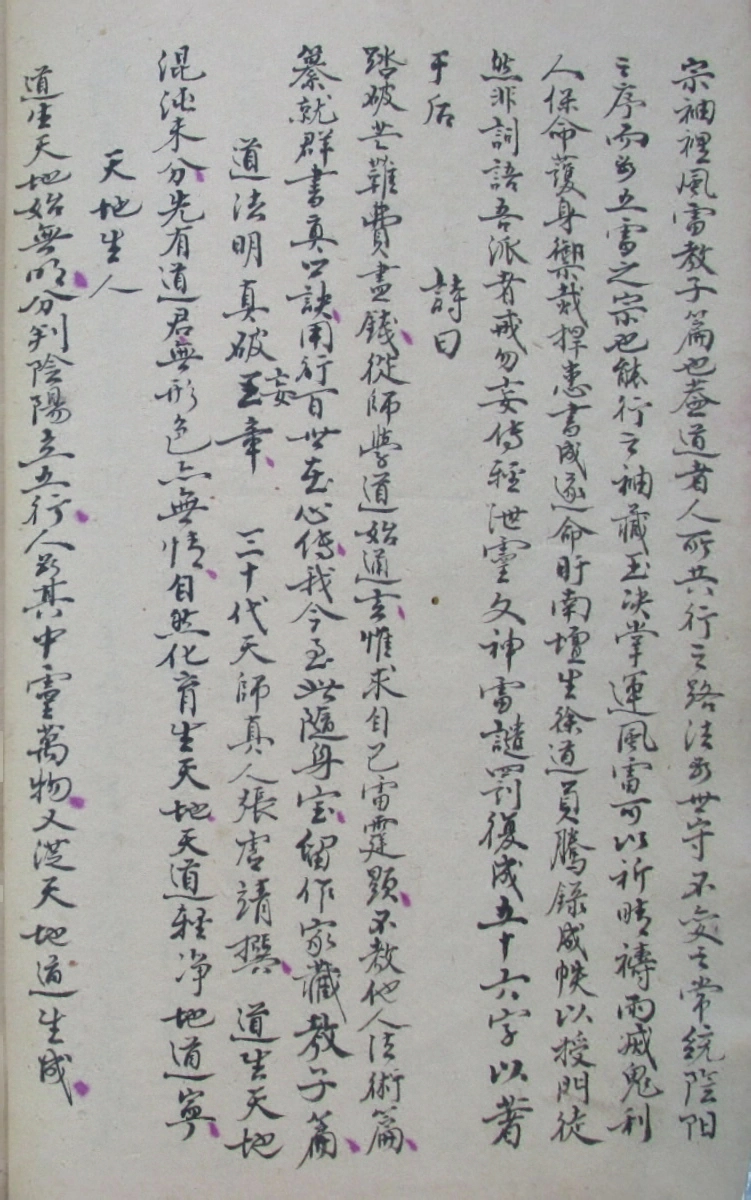 宗袖裡風雷教子篇也蓋道者人所共行之路法為世守不变之常統陰阳
之序而為五雷之宗也能行之袖藏玉决掌運風雷可以祈晴禱雨滅鬼利
人保命護身禦災捍患書成遂命盱南壇生徐道員騰錄成帙以授門徒
然非詞語吾派者戒勿妄傳輕泄靈文神雷譴罰復成五十六字以著
于后　詩曰
踏破芒鞋費盡錢從師學道始通玄惟求自己雷霆顕不教他人法術篇
纂就群書真口訣用行百世在心傳我今至此隨身宝留作家藏教子篇
道法明真破妄章　三十代天師真人張虛靖撰　道生天地
混沌未分先有道君無形色亦無情自然化育生天地天道軽净地道寧
天地生人
道生天地始無明分判陰陽立五行人於其中靈萬物又從天地道生成